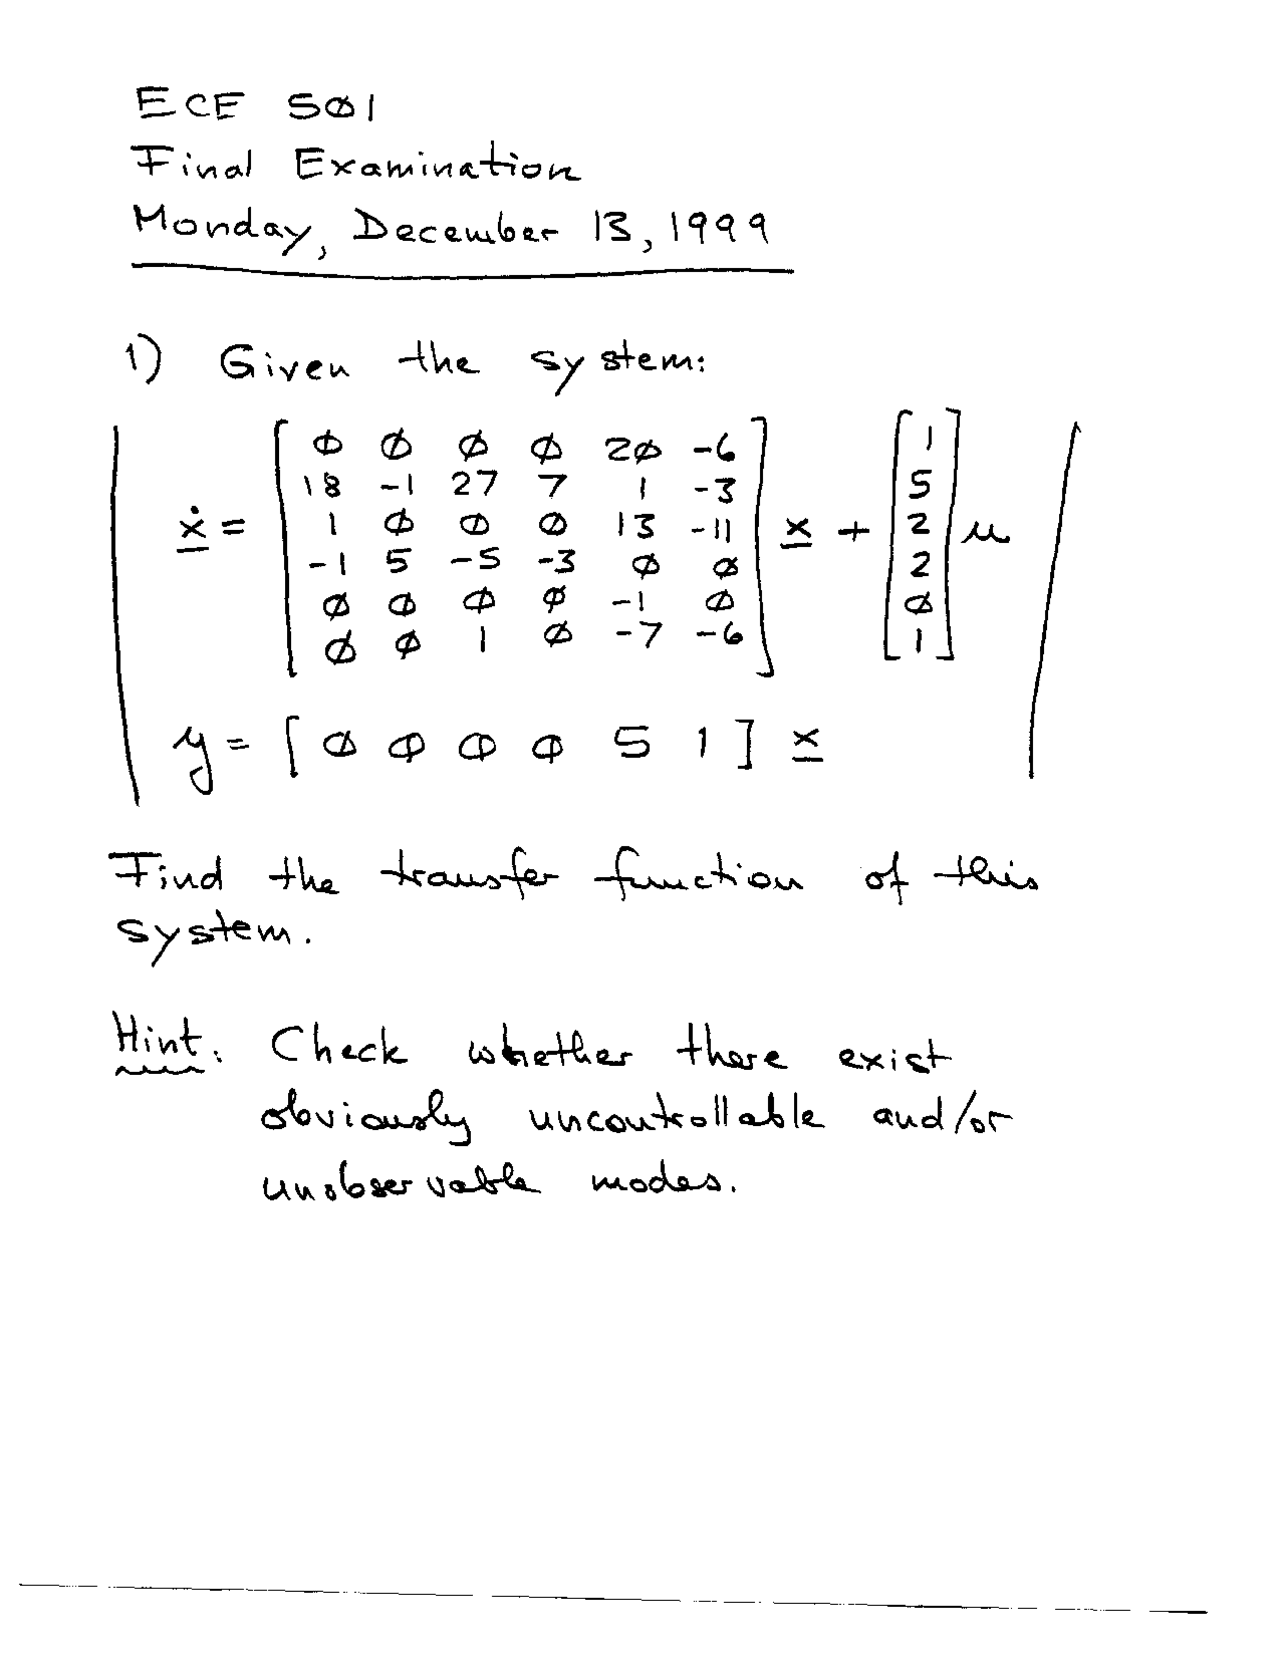 ECE 5Ø1
Final Examination
Monday, December 13, 1999
1) Given the system:
ẋ = [ Ø Ø Ø Ø 2Ø -6 ; 18 -1 27 7 1 -3 ; 1 Ø Ø Ø 13 -11 ; -1 5 -5 -3 Ø Ø ; Ø Ø Ø Ø -1 Ø ; Ø Ø 1 Ø -7 -6 ] x + [ 1 ; 5 ; 2 ; 2 ; Ø ; 1 ] u
y = [ Ø Ø Ø Ø 5 1 ] x
Find the transfer function of this
system.
Hint: Check whether there exist
obviously uncontrollable and/or
unobservable modes.